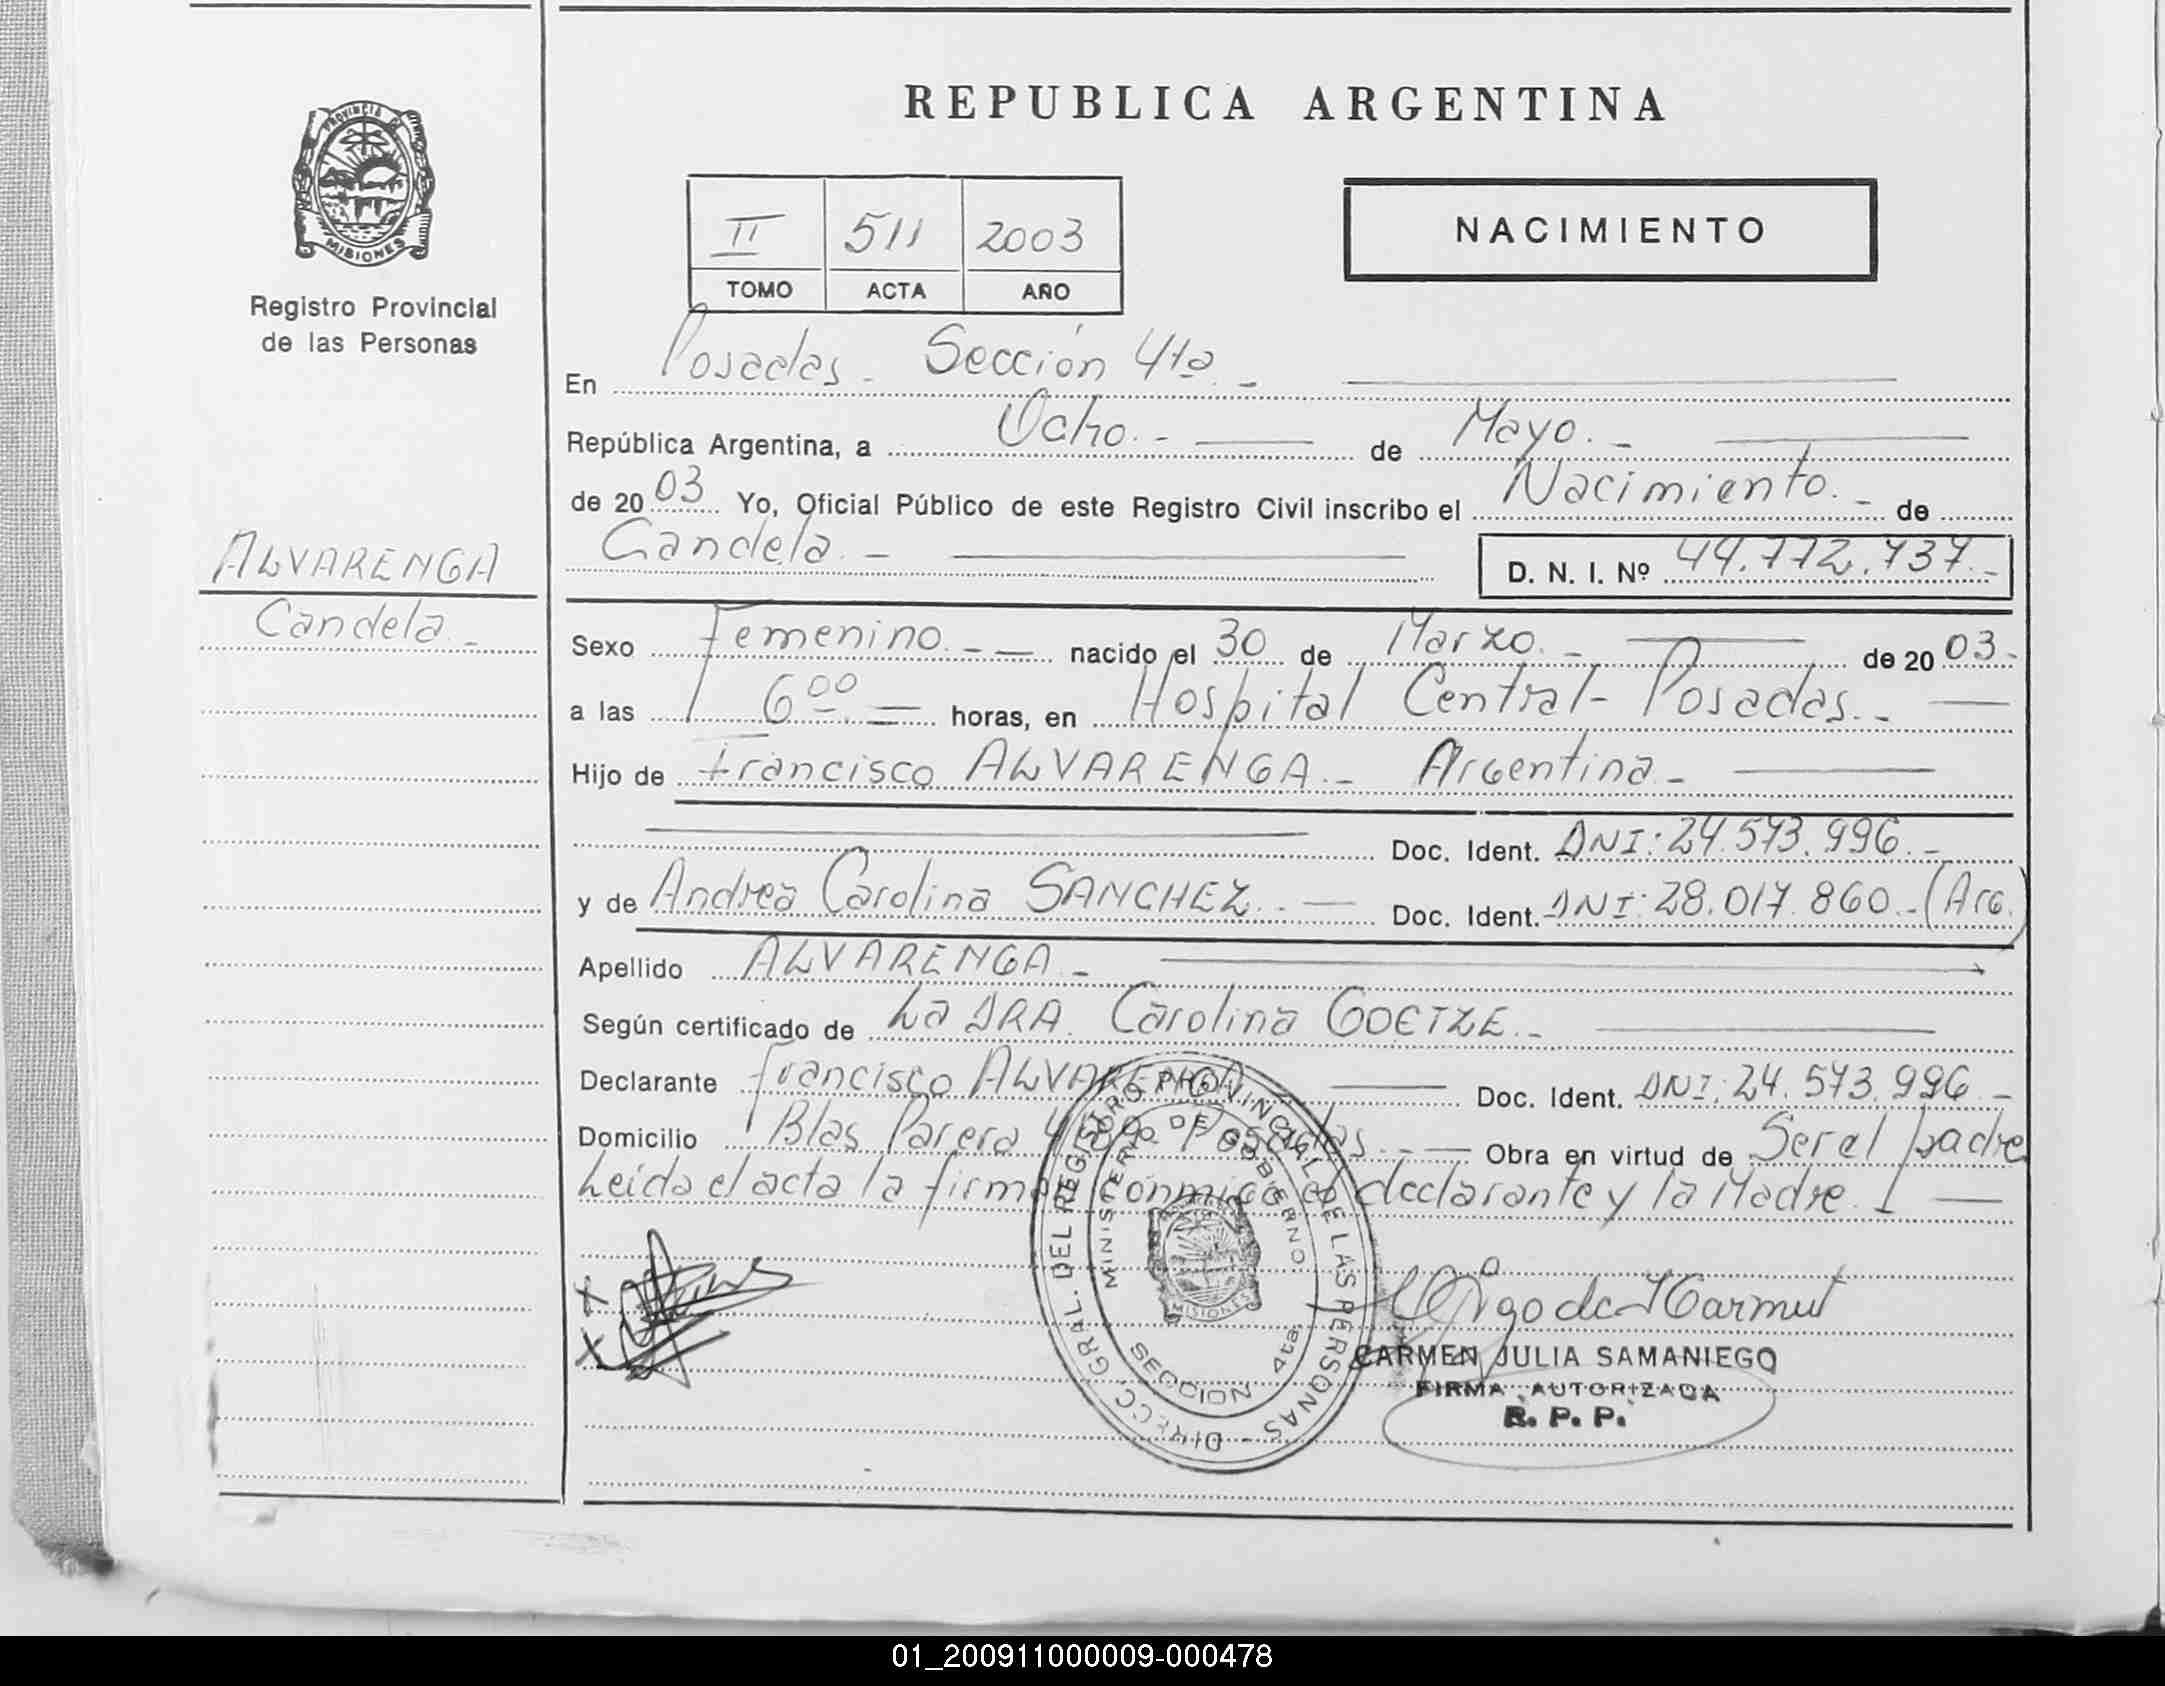 REPUBLICA ARGENTINA
PROVINCIA DE
MISIONES
Registro Provincial
de las Personas
II 511 2003
TOMO ACTA AÑO
NACIMIENTO
En Posadas - Sección 4ta. -
República Argentina, a Ocho. - de Mayo. -
de 20 03 Yo, Oficial Público de este Registro Civil inscribo el Nacimiento. - de
Candela. - D. N. I. Nº 44.772.737.-
ALVARENGA
Candela. -
Sexo Femenino. - nacido el 30 de Marzo. - de 20 03.-
a las 6 00 horas, en Hospital Central - Posadas. -
Hijo de Francisco ALVARENGA. - Argentina -
Doc. Ident. DNI: 24.573.996. -
y de Andrea Carolina SANCHEZ. - Doc. Ident. DNI: 28.017.860.-(Arg.)
Apellido ALVARENGA. -
Según certificado de La DRA. Carolina GOETZE. -
Declarante Francisco ALVARENGA Doc. Ident. DNI: 24.573.996. -
Domicilio Blas Parera Posadas. - Obra en virtud de Ser el padre
Leida el acta la firma conmigo el declarante y la Madre.
DIRECC. GRAL. DEL REGISTRO PROVINCIAL DE LAS PERSONAS -
MINISTERIO DE GOBIERNO
MISIONES
SECCION 4ta.
CARMEN JULIA SAMANIEGO
FIRMA AUTORIZADA
R. P. P.
01_200911000009-000478